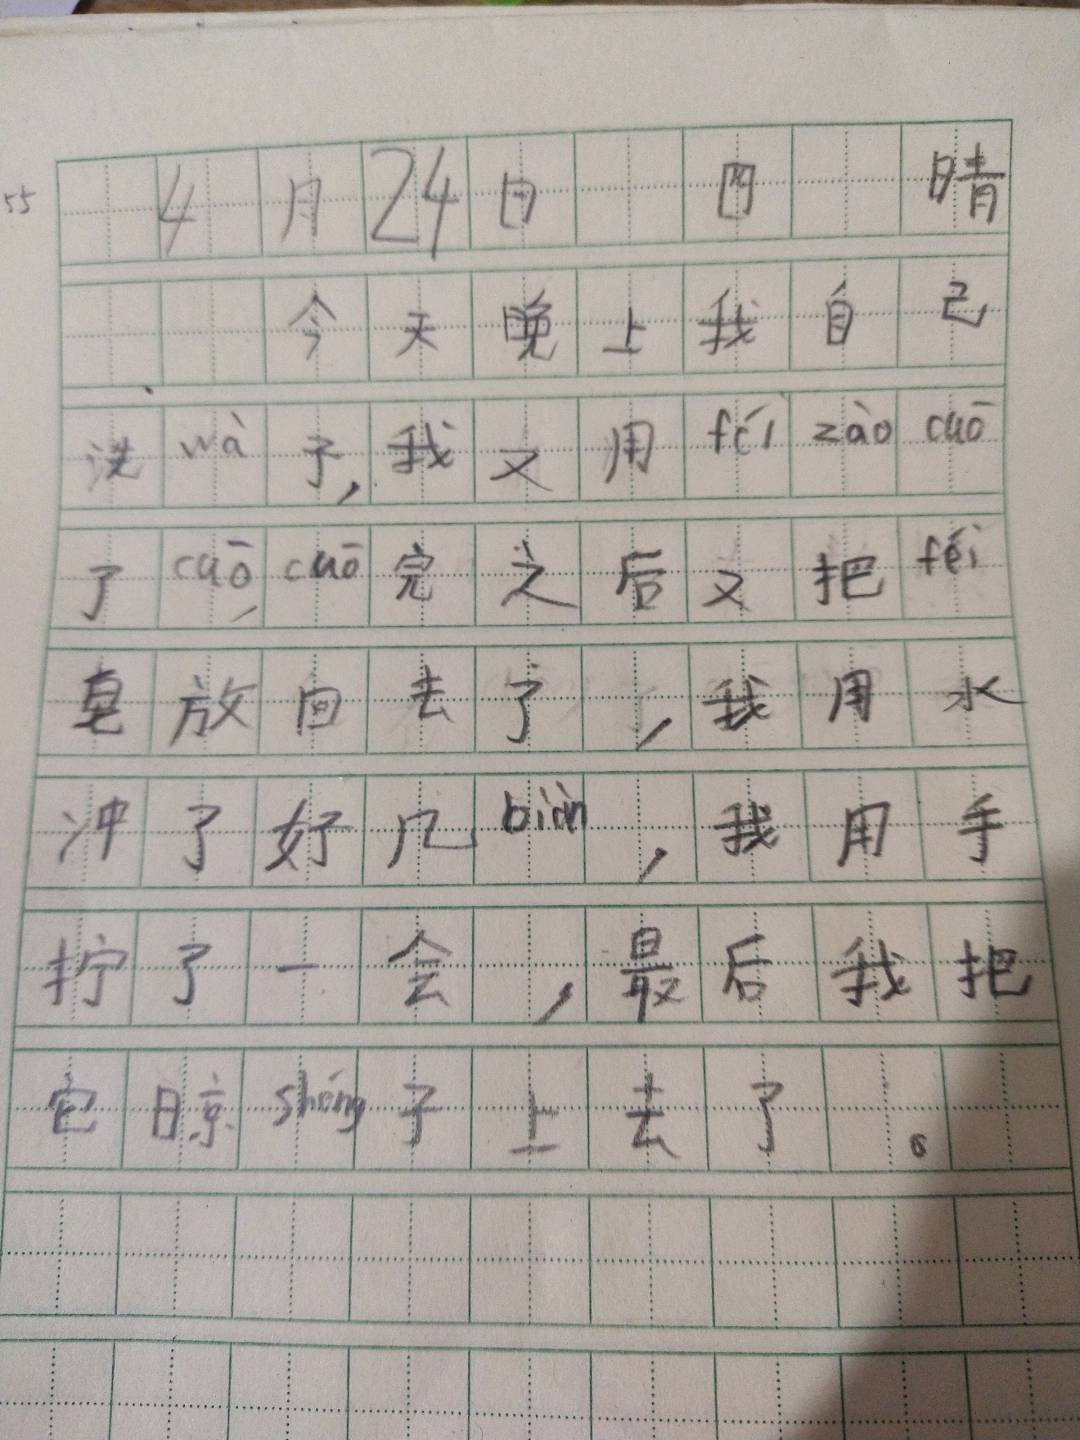 55
4月24日 四 晴
今天晚上我自己
洗wà子,我又用féi zào cuō
了cuō, cuō完之后又把féi
皂放回去了,我用水
冲了好几biàn,我用手
拧了一会,最后我把
它晾shéng子上去了。